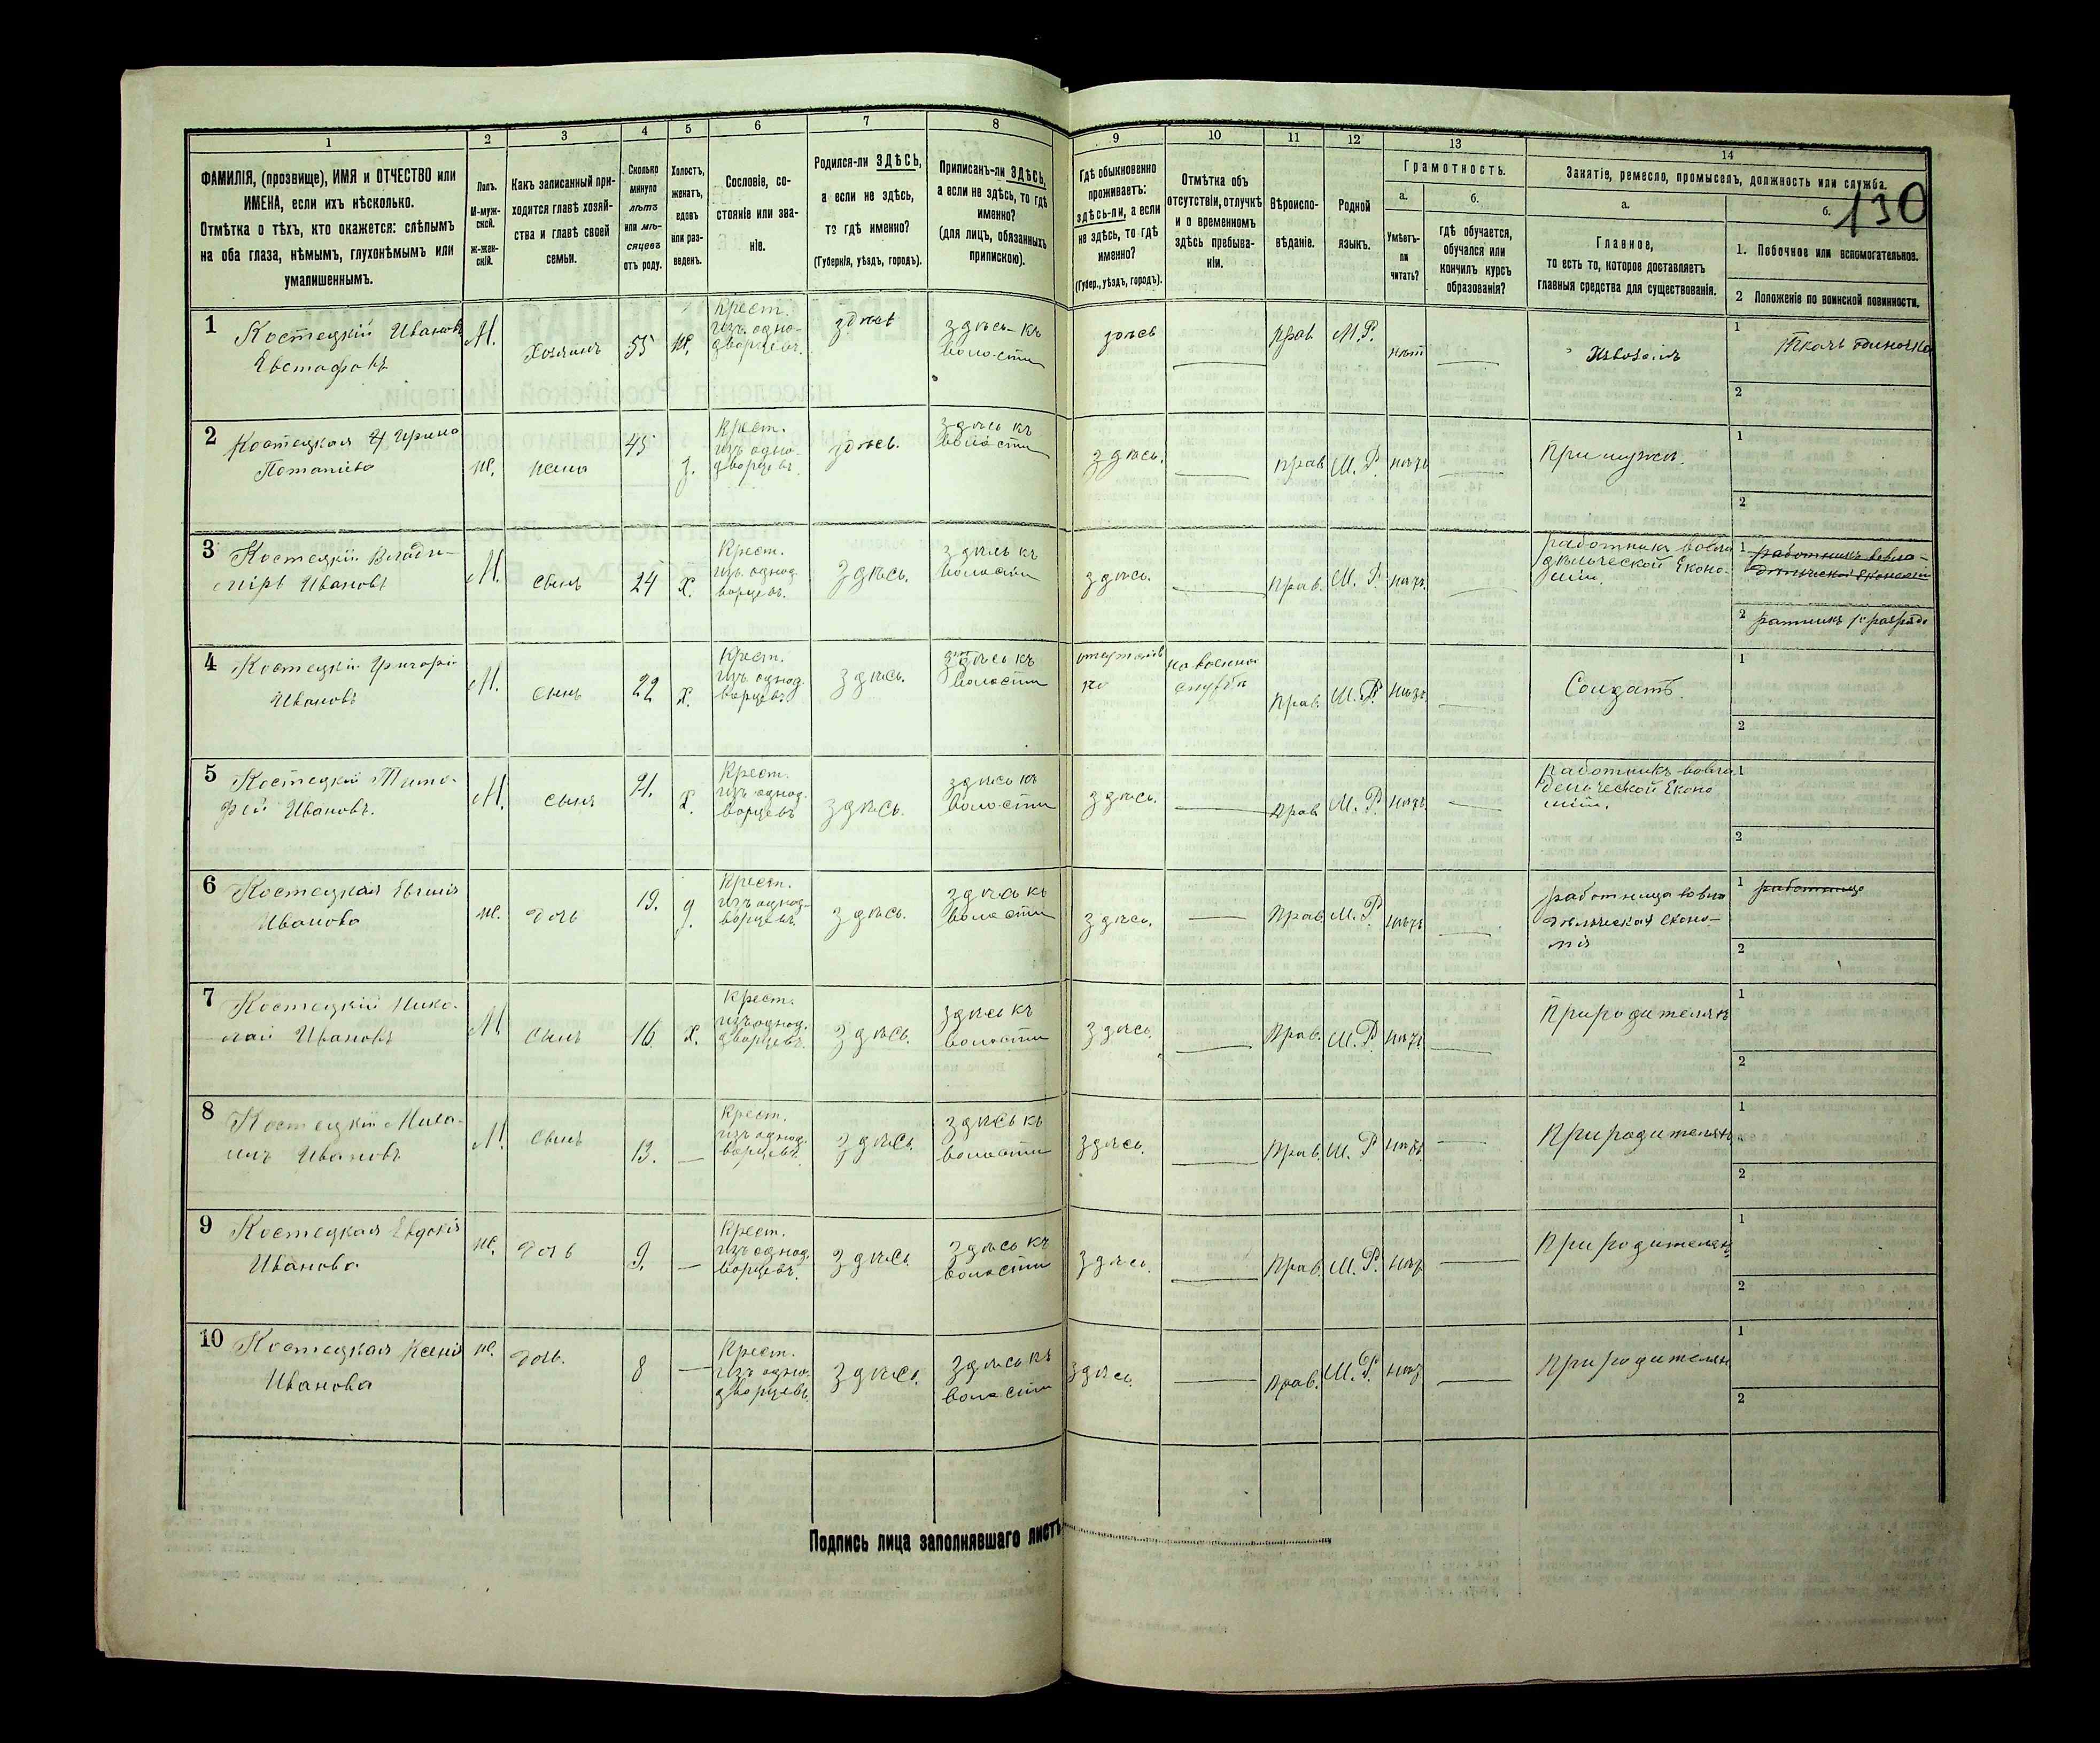 130
1 2 3 4 5 6 7 8 9 10 11 12 13 14
ФАМИЛІЯ, (прозвище), ИМЯ и ОТЧЕСТВО или
ИМЕНА, если ихъ нѣсколько.
Отмѣтка о тѣхъ, кто окажется: слѣпымъ
на оба глаза, нѣмымъ, глухонѣмымъ или
умалишеннымъ.
Полъ.
М-муж-
ской.
ж-жен-
скій.
Какъ записанный при-
ходится главѣ хозяй-
ства и главѣ своей
семьи.
Сколько
минуло
лѣтъ
или мѣ-
сяцевъ
отъ роду.
Холостъ,
женатъ,
вдовъ
или раз-
веденъ.
Сословіе, со-
стояніе или зва-
ніе.
Родился-ли ЗДѢСЬ,
а если не здѣсь,
то гдѣ именно?
(Губернія, уѣздъ, городъ).
Приписанъ-ли ЗДѢСЬ,
а если не здѣсь, то гдѣ
именно?
(для лицъ, обязанныхъ
припискою).
Гдѣ обыкновенно
проживаетъ:
здѣсь-ли, а если
не здѣсь, то гдѣ
именно?
(Губер., уѣздъ, городъ).
Отмѣтка объ
отсутствіи, отлучкѣ
и о временномъ
здѣсь пребыва-
ніи.
Вѣроиспо-
вѣданіе.
Родной
языкъ.
Грамотность.
а.
Умѣетъ-
ли
читать?
б.
гдѣ обучается,
обучался или
кончилъ курсъ
образованія?
Занятіе, ремесло, промыселъ, должность или служба.
а.
Главное,
то есть то, которое доставляетъ
главныя средства для существованія.
б.
1. Побочное или вспомогательное.
2 Положеніе по воинской повинности.
1 Костецкій Иванъ
Евстафовъ
М. Хозяинъ 55 ж.
Крест.
изъ одно-
дворцевъ.
здѣсь
здѣсь-къ
волости
здѣсь
Прав М.Р. нѣт
Хлѣбопаш.
1 Ткачъ одиночка
2
2 Костецкая Ирина
Потапіева
ж. жена 45 з.
Крест.
изъ одно-
дворцевъ.
здѣсь.
здѣсь къ
волости
здѣсь.
Прав М. Р. нѣтъ
При мужѣ.
1
2
3 Костецкій Влади-
міръ Ивановъ
М. сынъ 24 х.
Крест.
изъ однод.
ворцевъ.
здѣсь.
здѣсь къ
волости
здѣсь.
Прав. М. Р. нѣтъ.
работникъ вовла
дѣльческой Эконо-
міи.
1 работникъ вовла-
дѣльческой Экономіи
2 ратникъ 1го разряда
4 Костецкій Григорій
Ивановъ
М. сынъ 22 х.
Крест.
изъ однод.
ворцевъ.
здѣсь.
здѣсь къ
волости
на военной
службѣ
Прав. М. Р. нѣтъ.
Солдатъ.
1
2
5 Костецкій Тимо-
фей Ивановъ.
М. сынъ 21. х.
Крест.
изъ однод.
ворцевъ
здѣсь.
здѣсь къ
волости
здѣсь.
Прав М. Р. нѣтъ
Работникъ вовла
дельческой Эконо
міи.
1
2
6 Костецкая Евгенія
Иванова
ж. дочь 19. д.
Крест.
изъ однод-
ворцевъ.
здѣсь.
здѣсь къ
волости
здѣсь.
Прав. М. Р. нѣтъ
работница вовла
дѣльческая Эконо-
мія
1 работница
2
7 Костецкій Нико-
лай Ивановъ
М. сынъ 16. х.
Крест.
изъ однод.
дворцевъ.
здѣсь.
здѣсь къ
волости
здѣсь.
Прав. М. Р. нѣтъ
При родителяхъ
1
2
8 Костецкій Миха-
илъ Ивановъ
М. сынъ 13. —
Крест.
изъ однод.
ворцевъ.
здѣсь.
здѣсь къ
волости
здѣсь.
Прав. М. Р нѣтъ.
При родителяхъ
1
2
9 Костецкая Евдокія
Иванова
ж. дочь 9. —
Крест.
изъ однод.
ворцевъ.
здѣсь
здѣсь къ
волости
здѣсь.
Прав. М. Р. нѣтъ
При родителяхъ
1
2
10 Костецкая Ксенія
Иванова
ж. дочь. 8 —
Крест.
изъ одно-
дворцевъ.
здѣсь.
здѣсь къ
волости
здѣсь.
Прав. М. Р. нѣтъ
При родителях
1
2
Подпись лица заполнявшаго листъ